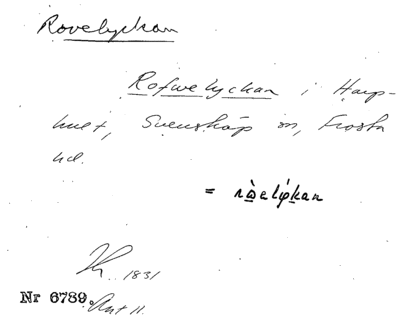 Rovelyckan
Rofwelyckan i Harp-
hult, Svensköp sn, Frosta
hd.
= ròelýkan
1831
Nr 6789. Ant 11.